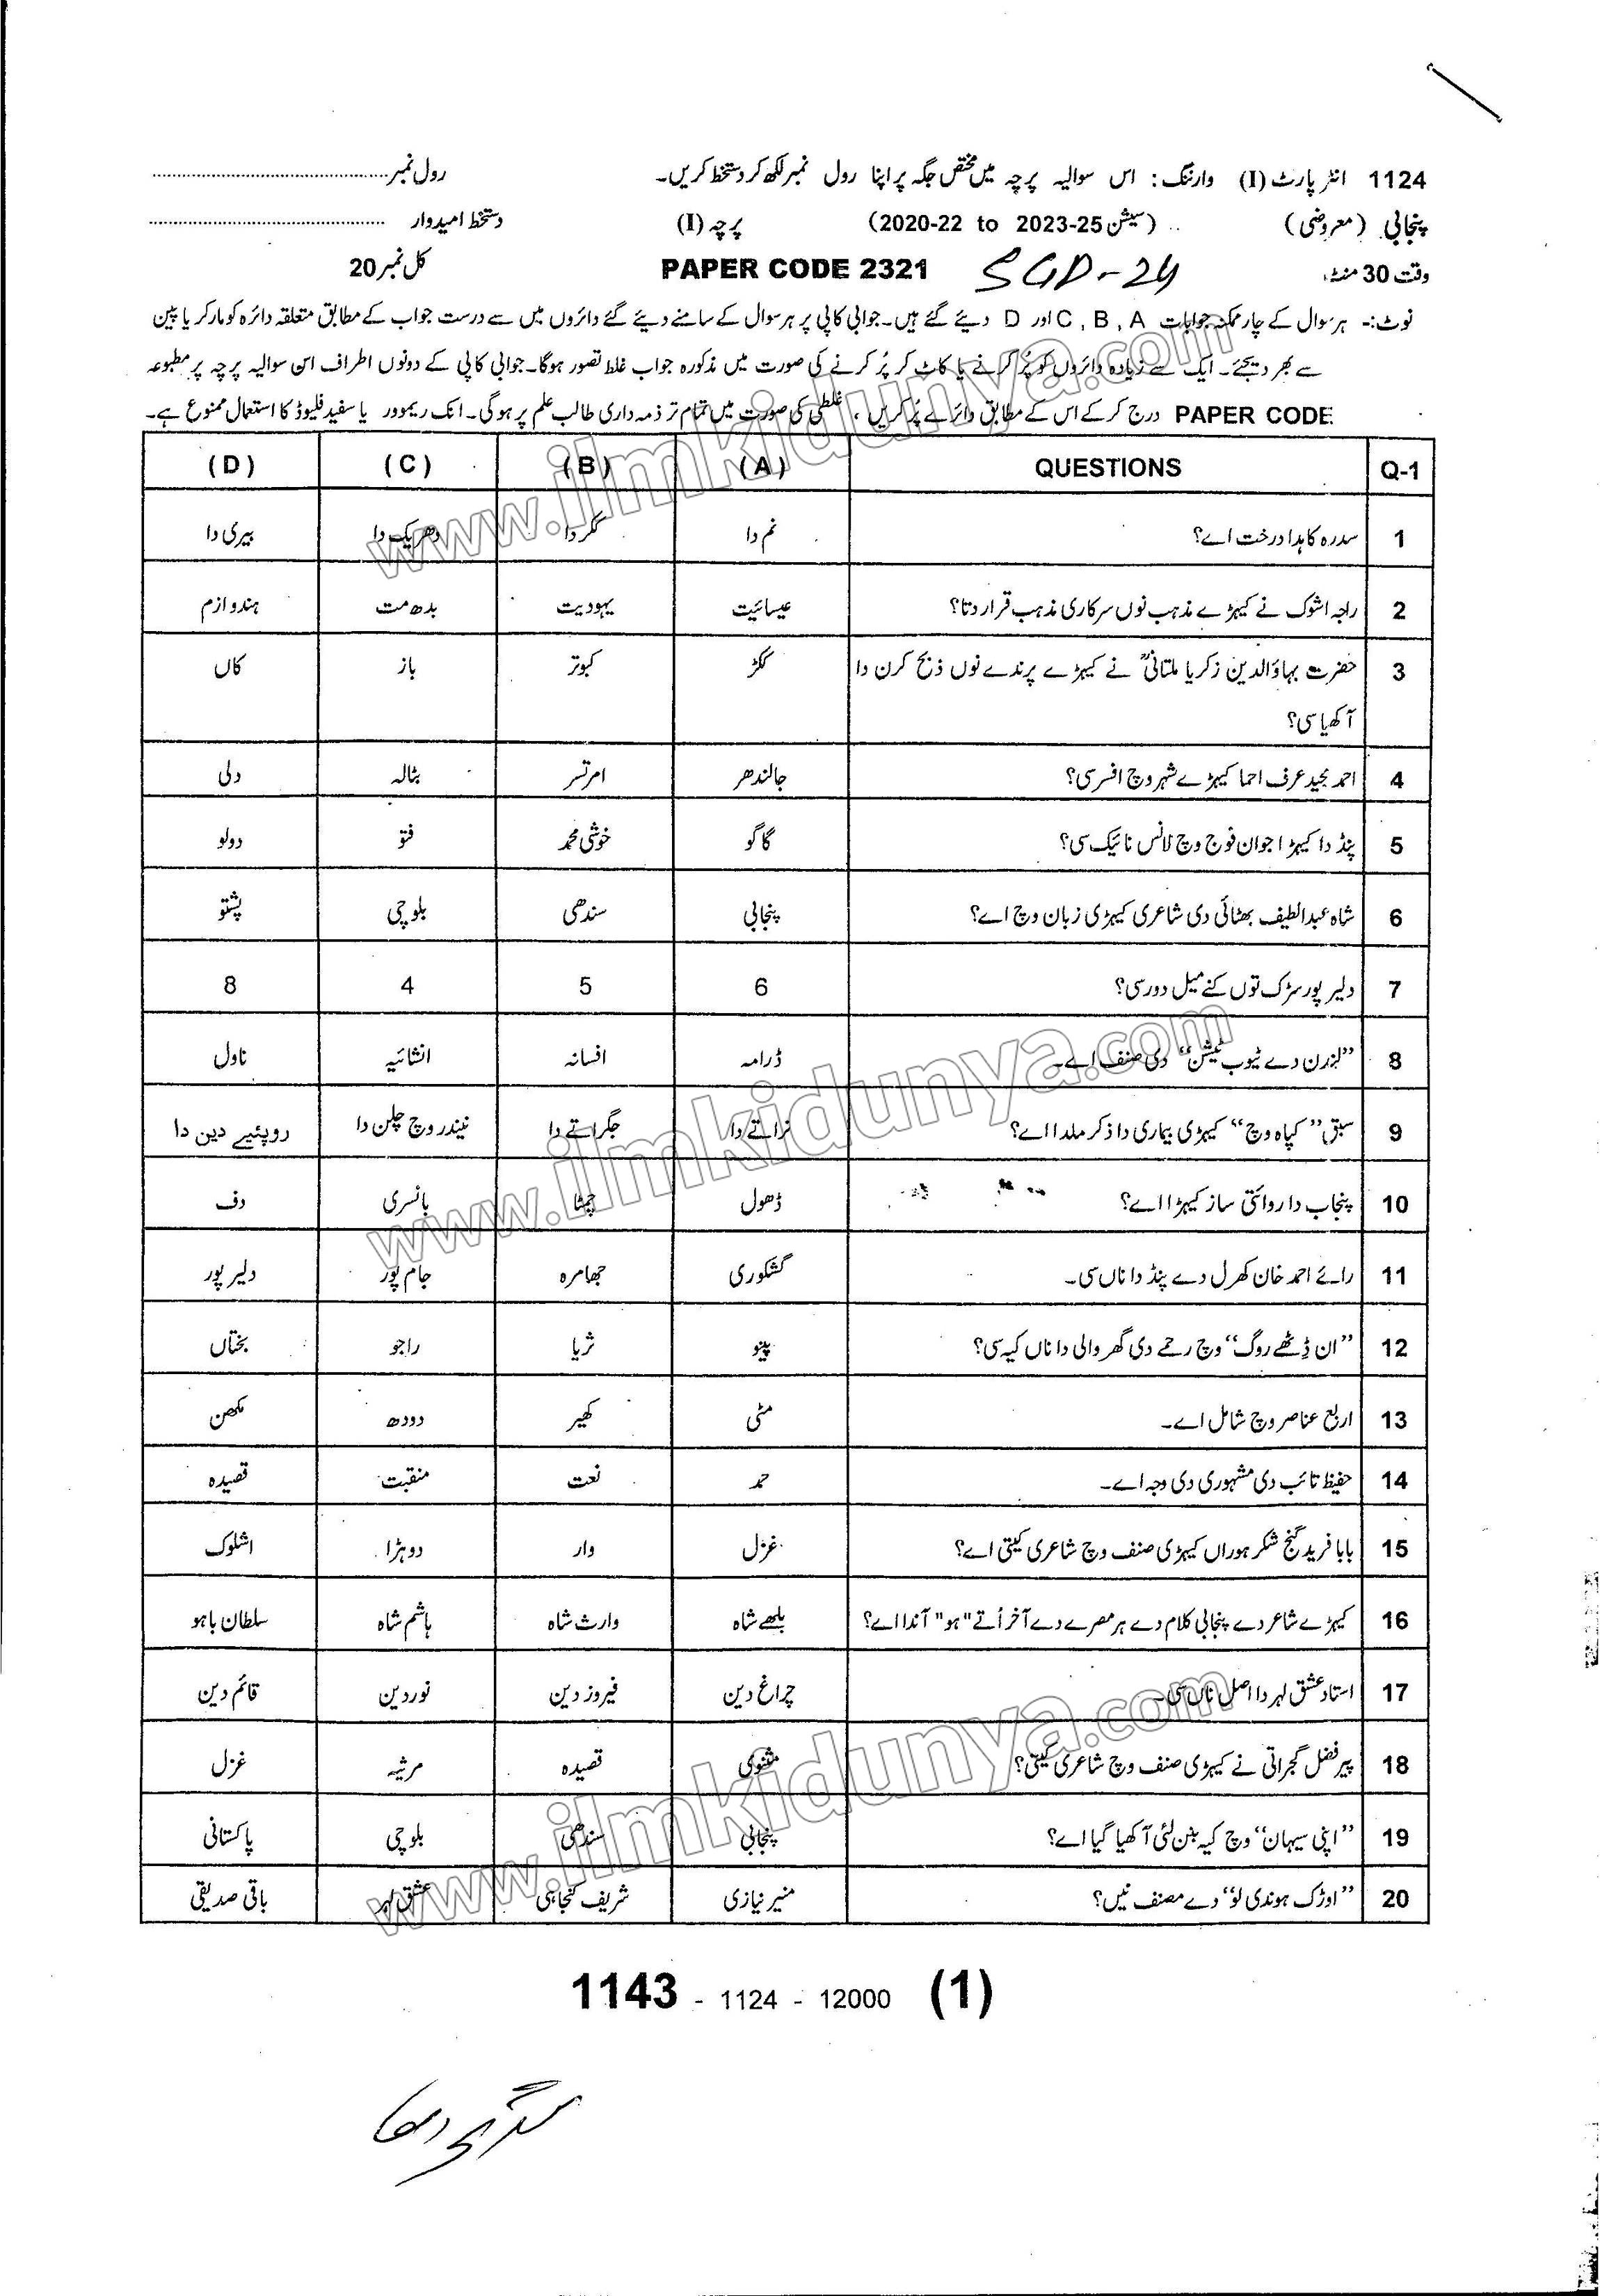 1124 انٹر پارٹ (I) وارننگ: اس سوالیہ پرچہ میں مختص جگہ پر اپنا رول نمبر لکھ کر دستخط کریں۔ رول نمبر
پنجابی (معروضی) (سیشن 2020-22 to 2023-25) پرچہ (I) دستخط امیدوار
وقت 30 منٹ SGD-24 PAPER CODE 2321 کل نمبر 20
نوٹ:- ہر سوال کے چار ممکنہ جوابات A , B , C اور D دیئے گئے ہیں۔ جوابی کاپی پر ہر سوال کے سامنے دیئے گئے دائروں میں سے درست جواب کے مطابق متعلقہ دائرہ کو مارکر یا پین
سے بھر دیجئے۔ ایک سے زیادہ دائروں کو پُر کرنے یا کاٹ کر پُر کرنے کی صورت میں مذکورہ جواب غلط تصور ہوگا۔ جوابی کاپی کے دونوں اطراف اس سوالیہ پرچہ پر مطبوعہ
PAPER CODE درج کر کے اس کے مطابق دائرے پُر کریں، غلطی کی صورت میں تمام تر ذمہ داری طالب علم پر ہوگی۔ انک ریموور یا سفید فلیوڈ کا استعمال ممنوع ہے۔
Q-1 QUESTIONS (A) (B) (C) (D)
1 سدرہ کاہدا درخت اے؟ نم دا ککر دا دھریک دا بیری دا
2 راجہ اشوک نے کیہڑے مذہب نوں سرکاری مذہب قرار دتا؟ عیسائیت یہودیت بدھ مت ہندو ازم
3 حضرت بہاؤالدین زکریا ملتانیؒ نے کیہڑے پرندے نوں ذبح کرن دا ککڑ کبوتر باز کاں
آکھیا سی؟
4 احمد مجید عرف احما کیہڑے شہر وچ افسر سی؟ جالندھر امرتسر بٹالہ دلی
5 پنڈ دا کیہڑا جوان فوج وچ لانس نائیک سی؟ گاگو خوشی محمد فتو دولو
6 شاہ عبدالطیف بھٹائی دی شاعری کیہڑی زبان وچ اے؟ پنجابی سندھی بلوچی پشتو
7 دلیر پور سڑک توں کنے میل دور سی؟ 6 5 4 8
8 ”لنزرن دے ٹیوب ٹیشن“ دی صنف اے۔ ڈرامہ افسانہ انشائیہ ناول
9 سبق ”کپاہ وچ“ کیہڑی بیماری دا ذکر ملدا اے؟ نراتے دا جگراتے دا نیندر وچ چلن دا روپئیے دین دا
10 پنجاب دا روائتی ساز کیہڑا اے؟ ڈھول چمٹا بانسری دف
11 رائے احمد خان کھرل دے پنڈ دا ناں سی۔ گشکوری جھامرہ جام پور دلیر پور
12 ”ان ڈِٹھے روگ“ وچ رحمے دی گھر والی دا ناں کیہ سی؟ پینو ثریا راجو بختاں
13 اربع عناصر وچ شامل اے۔ مٹی کھیر دودھ مکھن
14 حفیظ تائب دی مشہوری دی وجہ اے۔ حمد نعت منقبت قصیدہ
15 بابا فرید گنج شکر ہوراں کیہڑی صنف وچ شاعری کیتی اے؟ غزل وار دوہڑا اشلوک
16 کیہڑے شاعر دے پنجابی کلام دے ہر مصرعے دے آخر اُتے "ہو" آندا اے؟ بلھے شاہ وارث شاہ ہاشم شاہ سلطان باہو
17 استاد عشق لہر دا اصل ناں سی۔ چراغ دین فیروز دین نور دین قائم دین
18 پیر فضل گجراتی نے کیہڑی صنف وچ شاعری کیتی؟ مثنوی قصیدہ مرثیہ غزل
19 ”اپنی سیہان“ وچ کیہ بنن لئی آکھیا گیا اے؟ پنجابی سندھی بلوچی پاکستانی
20 ”اوڑک ہوندی لو“ دے مصنف نیں؟ منیر نیازی شریف کنجاہی عشق لہر باقی صدیقی
1143 - 1124 - 12000 (1)
سرگودھا
www.ilmkidunya.com
www.ilmkidunya.com
www.ilmkidunya.com